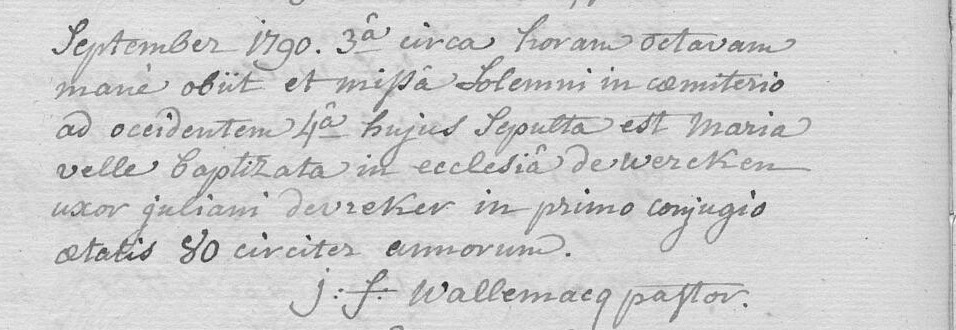 September 1790. 3â circa horam octavam
manè obiit et missâ Solemni in cœmiterio
ad occidentem 4â hujus Sepulta est Maria
velle baptizata in ecclesiâ de wercken
uxor juliani devreker in primo conjugio
ætatis 80 circiter annorum.
j: f: Wallemacq pastor.